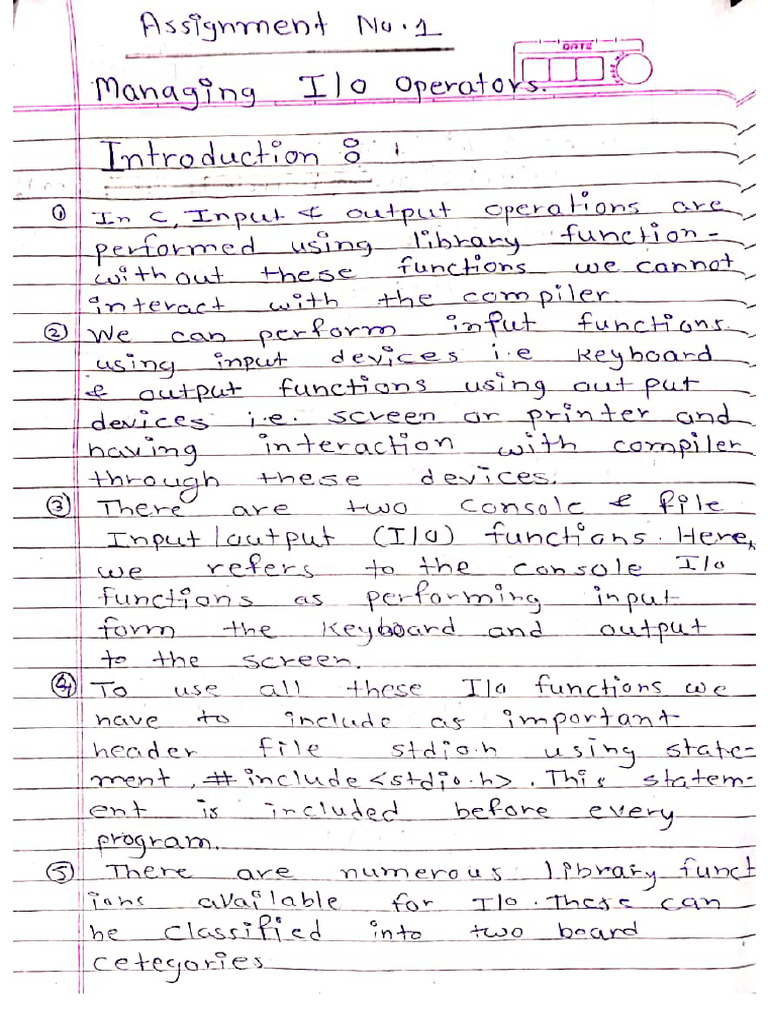 Assignment No.1
DATE
Managing I/O Operators.
Introduction :
① In C, Input & output operations are
performed using library function-
without these functions we cannot
interact with the compiler.
② We can perform input functions.
using input devices i.e keyboard
& output functions using output
devices i.e. screen or printer and
having interaction with compiler
through these devices.
③ There are two console & file
Input/output (I/O) functions. Here,
we refers to the console I/O
functions as performing input
form the keyboard and output
to the screen.
④ To use all these I/O functions we
have to include as important
header file stdio.h using state-
ment, #include<stdio.h>. This statem-
ent is included before every
program.
⑤ There are numerous library funct
ions available for I/O. These can
be classified into two board
cetegories